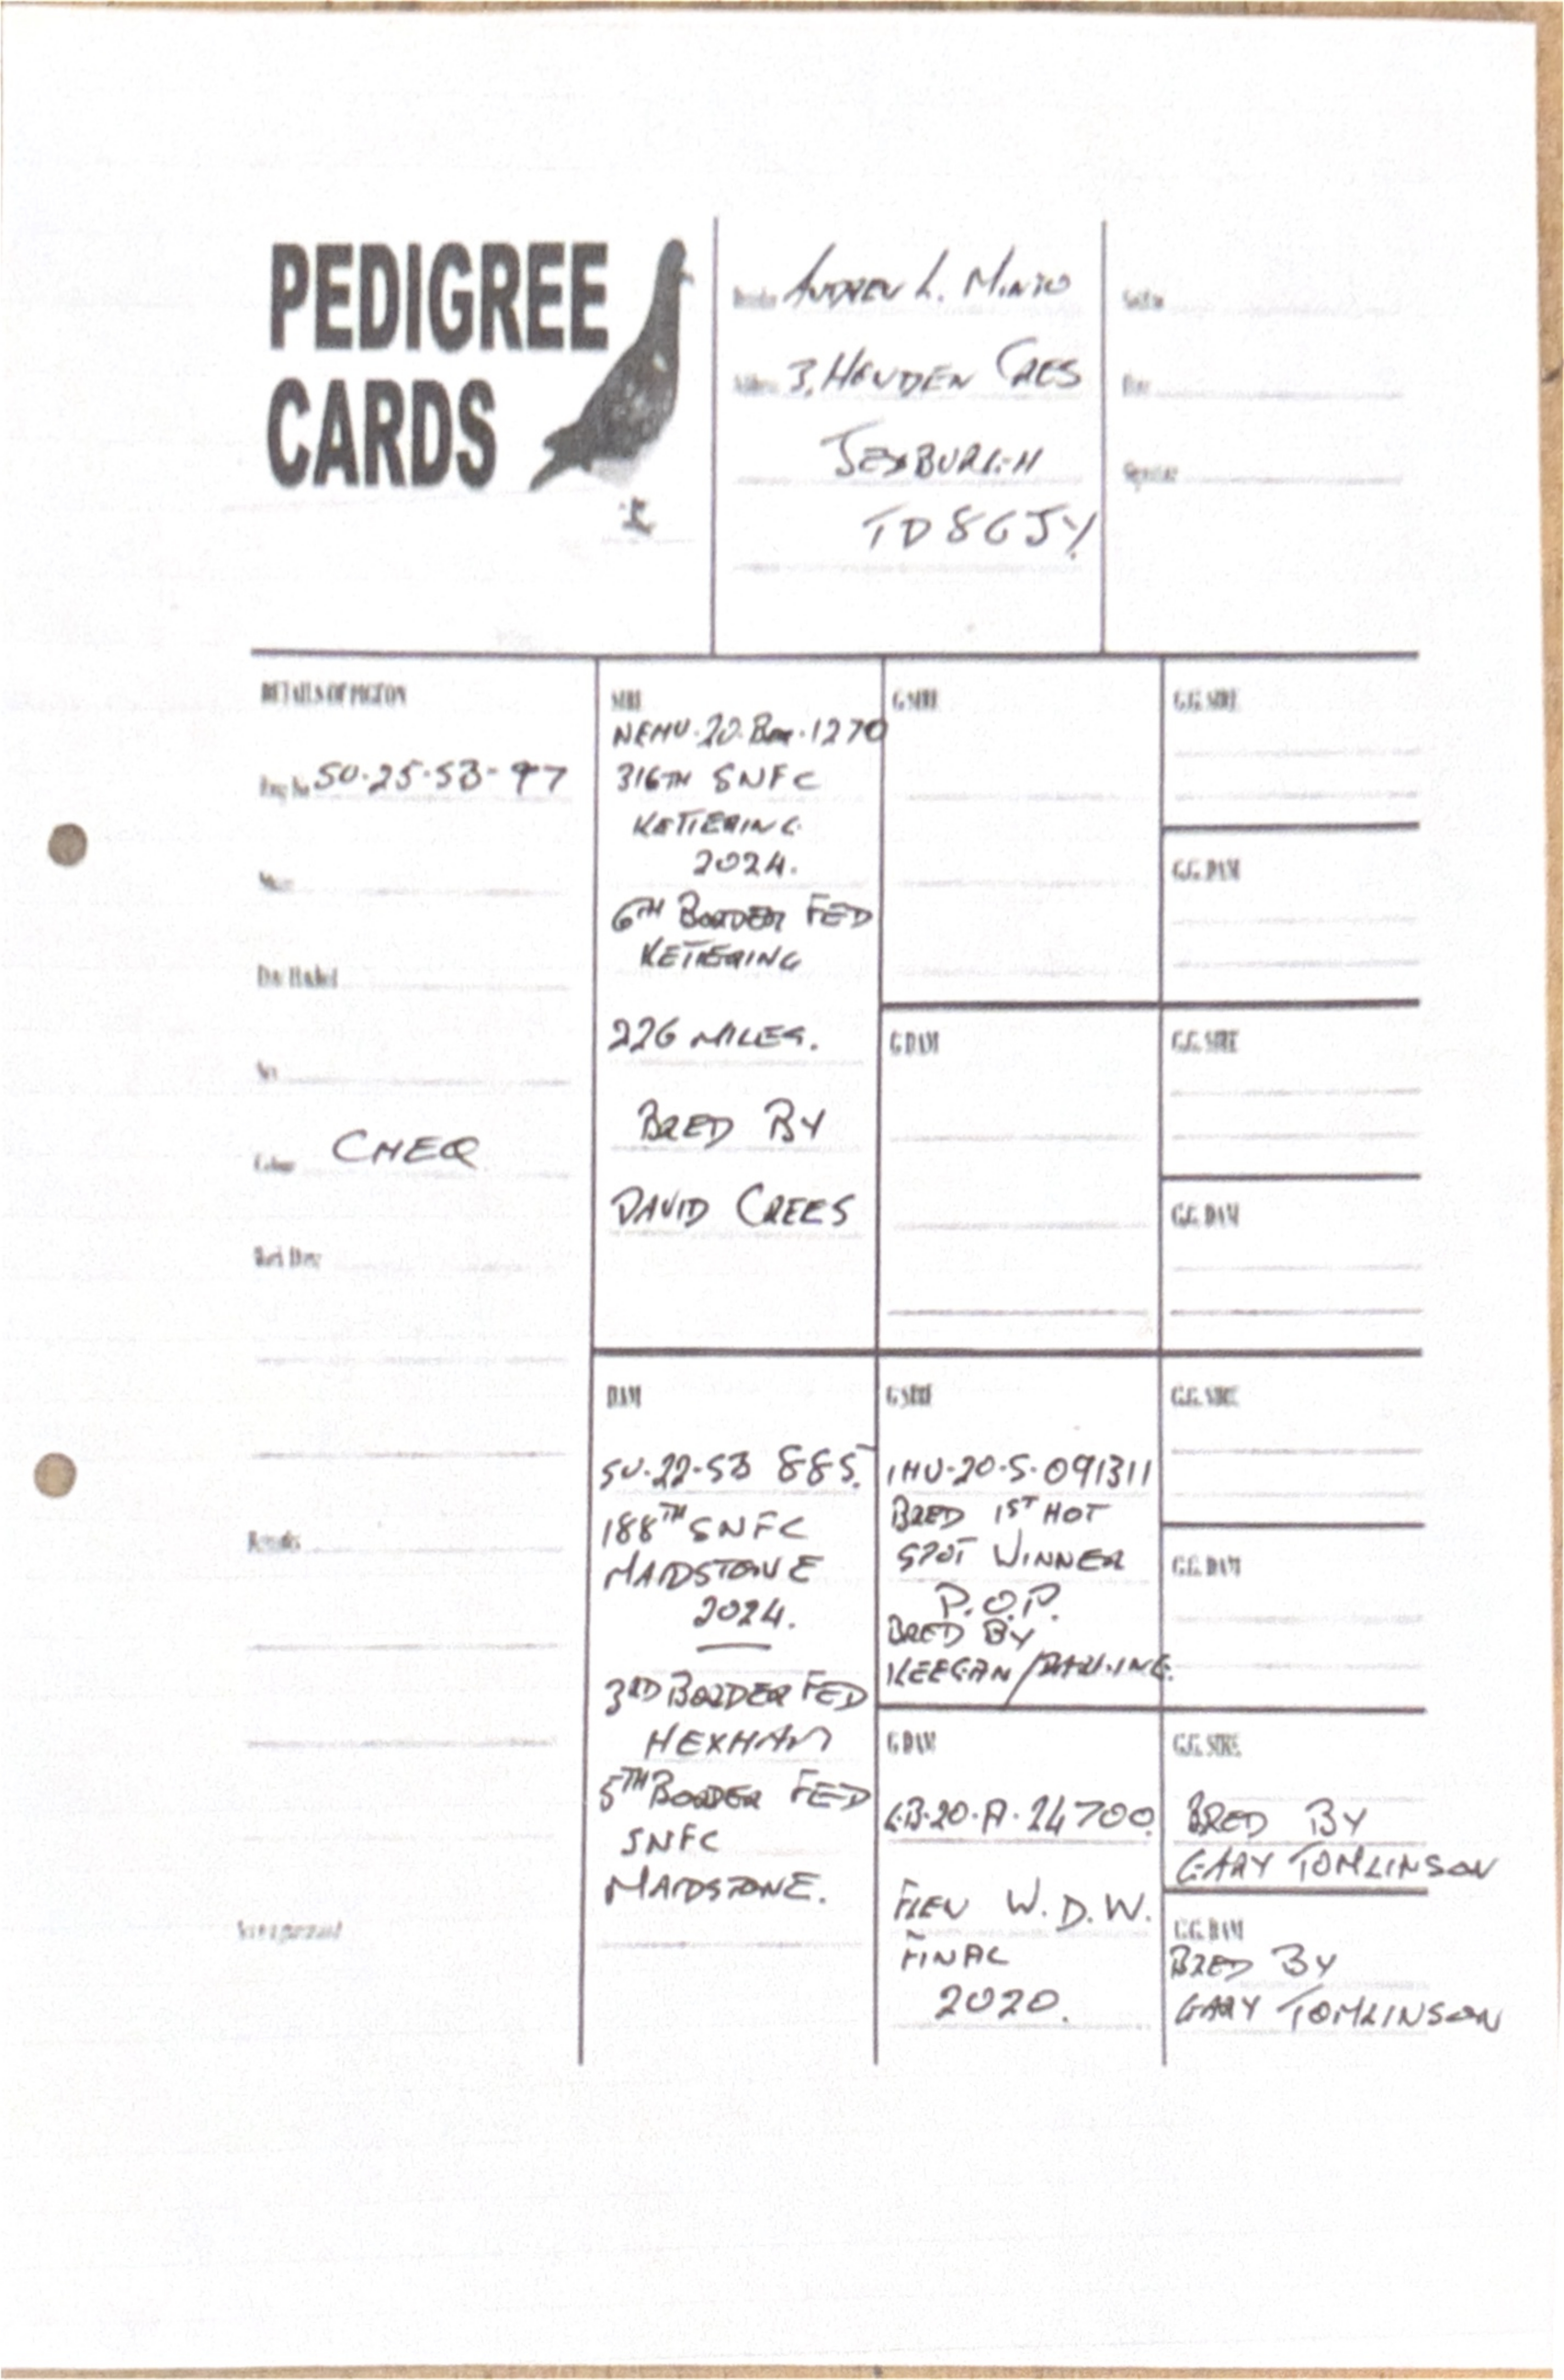 PEDIGREE
CARDS
Breeder ANDREW L. MINTO
Address 3, HOWDEN CRES
JEDBURGH
TD8 6JY.
Sold to
Date
Signature
DETAILS OF PIGEON
Ring No SU·25·SB-97
Name
Date Hatched
Sex
Colour CHEQ
Results
SIRE
NEHU·20·1270
316TH SNFC
KETTERING
2024.
6TH BORDER FED
KETTERING
226 MILES.
BRED BY
DAVID CREES
G SIRE
G DAM
G.G. SIRE
G.G. DAM
G.G. SIRE
G.G. DAM
DAM
SU·22-SB 885.
188TH SNFC
MAIDSTONE
2024.
3RD BORDER FED
HEXHAM
5TH BORDER FED
SNFC
MAIDSTONE.
G SIRE
IHU-20-S-091311
BRED 1ST HOT
SPOT WINNER
P.O.P.
BRED BY
KEEGAN/
G DAM
GB·20·A·24700.
FLEW W.D.W.
FINAL
2020.
G.G. SIRE
G.G. DAM
G.G. SIRE
BRED BY
GARY TOMLINSON
G.G. DAM
BRED BY
GARY TOMLINSON